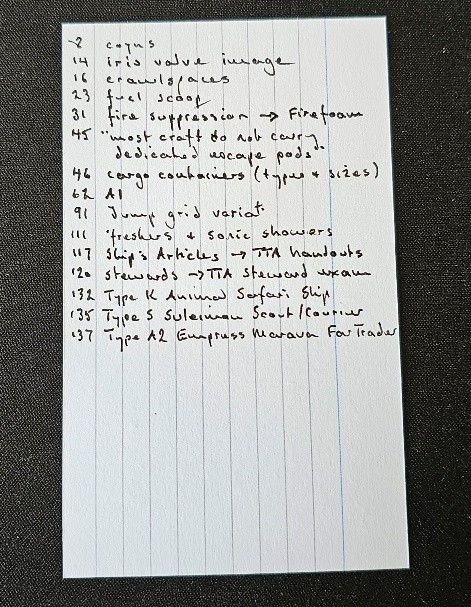 8 coyns
14 iris valve image
16 crawlspaces
23 fuel scoop
31 fire suppression → Firefoam
45 "most craft do not carry
dedicated escape pods"
46 cargo containers (types & sizes)
62 AI
91 Jump grid variat.
111 freshers & sonic showers
117 Ship's Articles → TTA handouts
120 stewards → TTA Steward exam
132 Type K Animal Safari Ship
135 Type S Suleiman Scout/Courier
137 Type A2 Empress Marava Far Trader